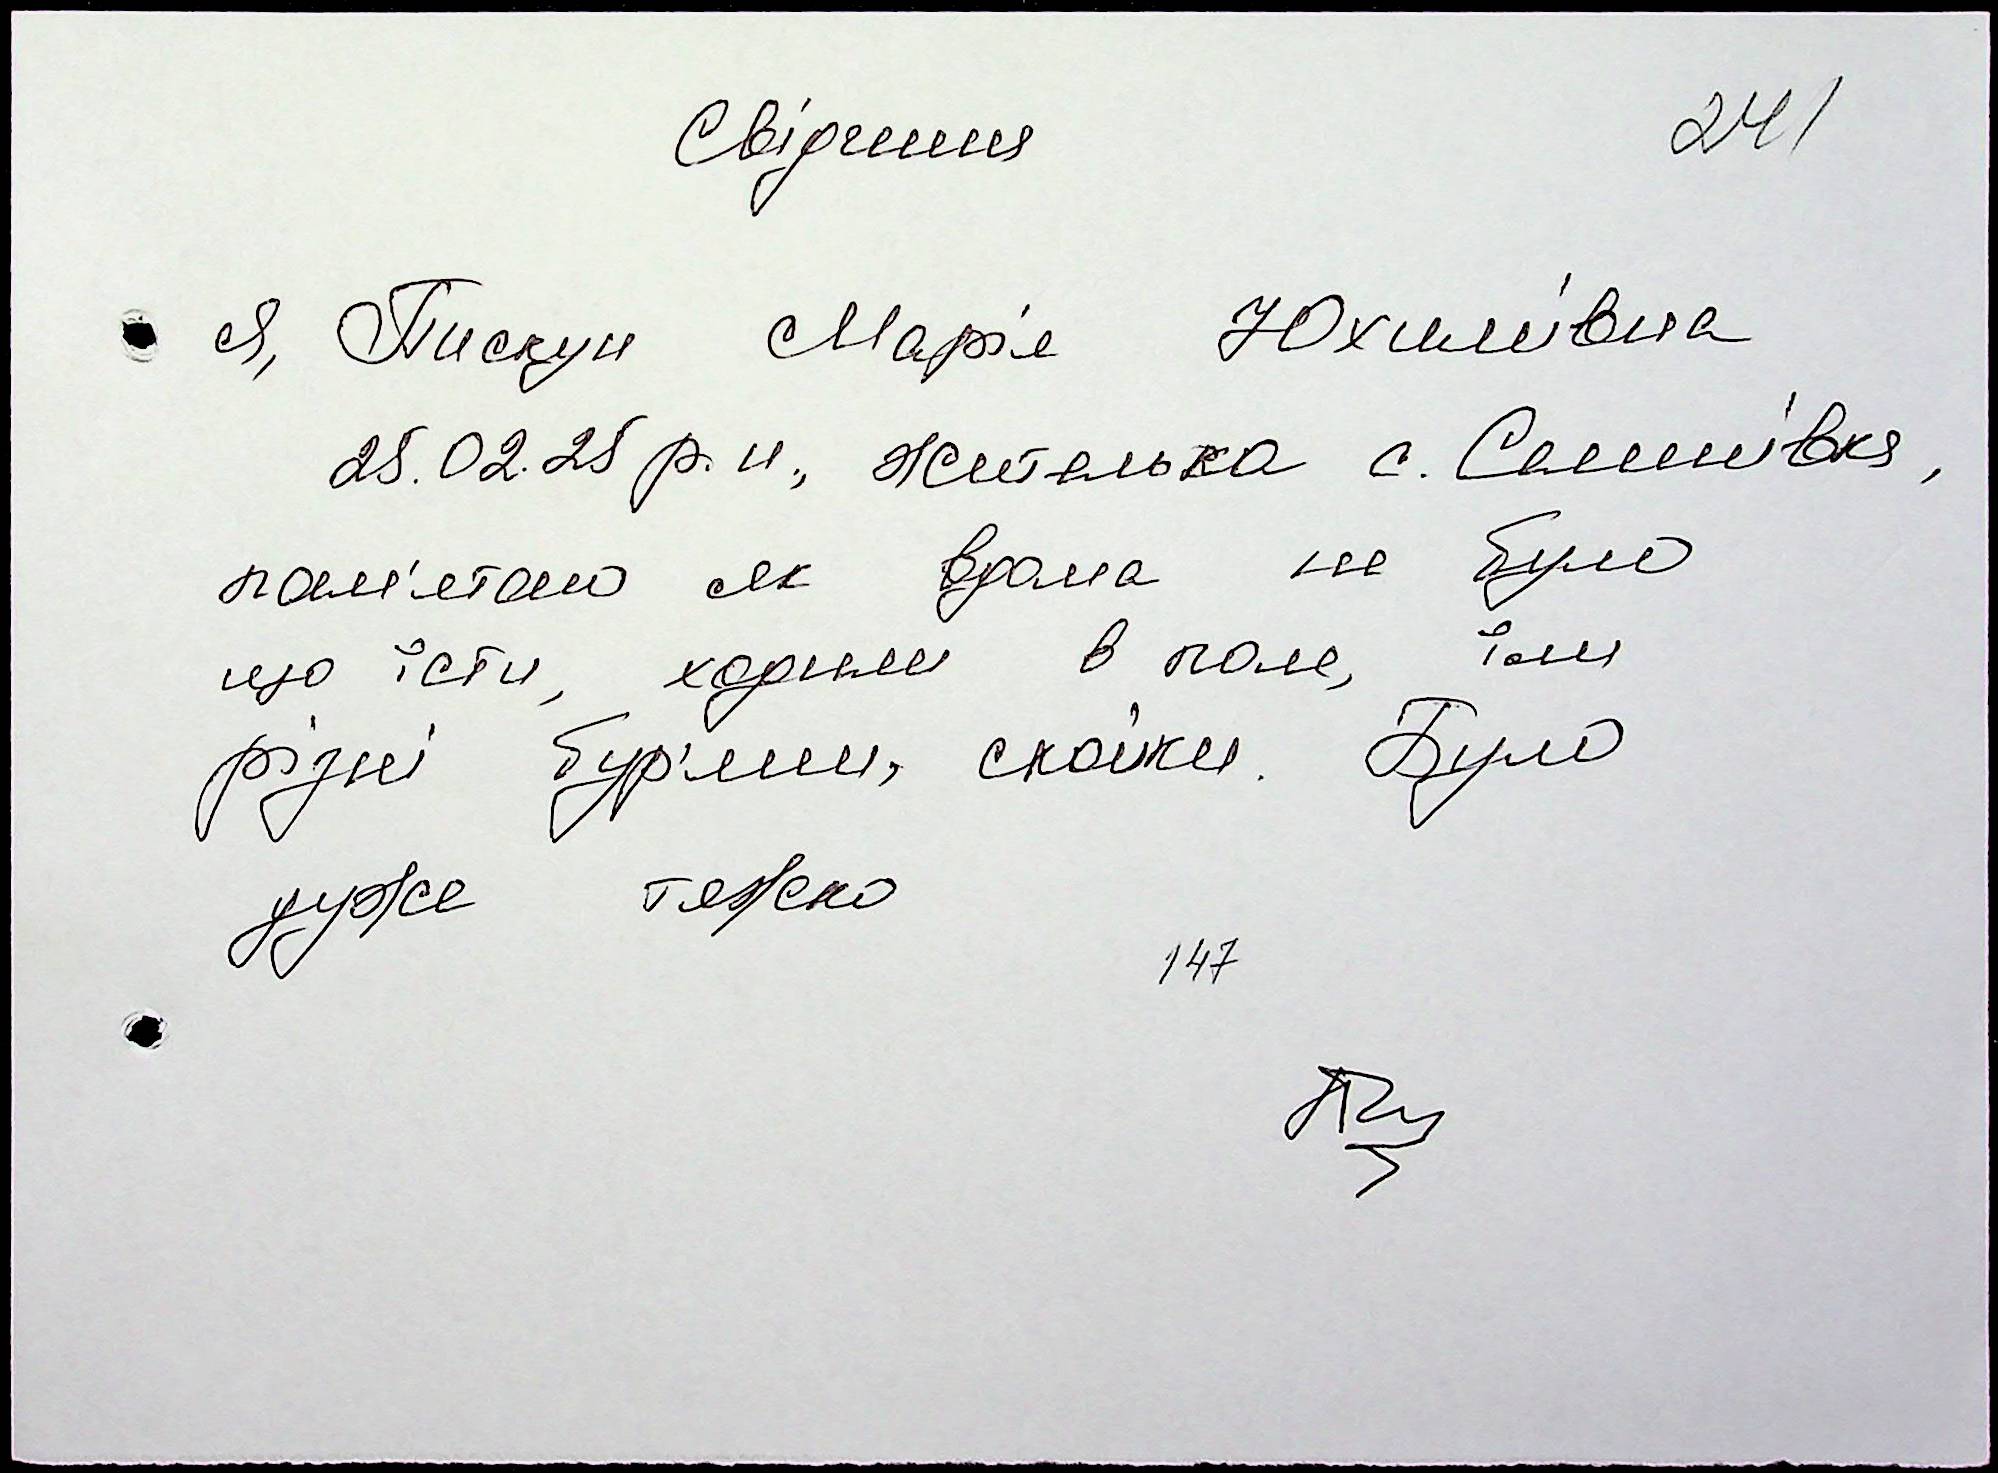 Свідчення 241
Я, Пискун Марія Юхимівна
25.02.25 р.н., жителька с. Саливівка,
пам'ятаю як вдома не було
що їсти, ходили в поле, їли
різні бур'яни, скойки. Було
дуже тяжко
147